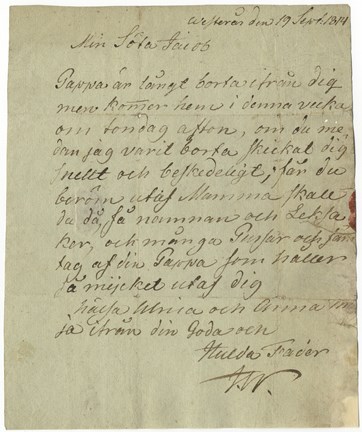 Westerås den 19 Sept. 1814
Min Söta Jacob
Pappa är långt borta ifrån dig
men kom̄er hem i denna vecka
om torsdag afton, om du me-
dan jag varit borta skickat dig
snellt och beskedeligt, får du
beröm utaf Mamma skall
du då få namnan och Leksa-
ker, och många Pussar och fam
tag af din Pappa som håller
så mijcket utaf dig
hälsa Ulrica och Anna M
ja ifrån din Goda och
Hulda Fader